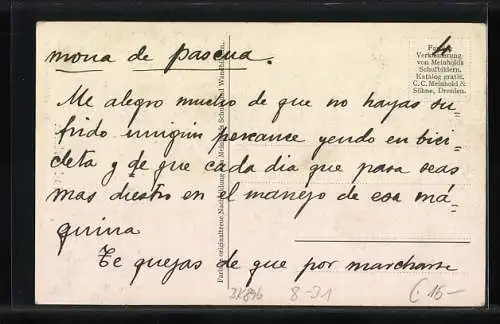 4
mona de pascua.
Me alegro mucho de que no hayas su-
frido ningún percance yendo en bici-
cleta y de que cada dia que pasa seas
mas diestro en el manejo de esa má-
quina
Te quejas de que por marcharse
Farbige
Verkleinerung
von Meinholds
Schulbildern.
Katalog gratis.
C. C. Meinhold &
Söhne, Dresden.
Farbige originaltreue Nachbildung Meinholds Schul- und Wandbildern
8-31
15-